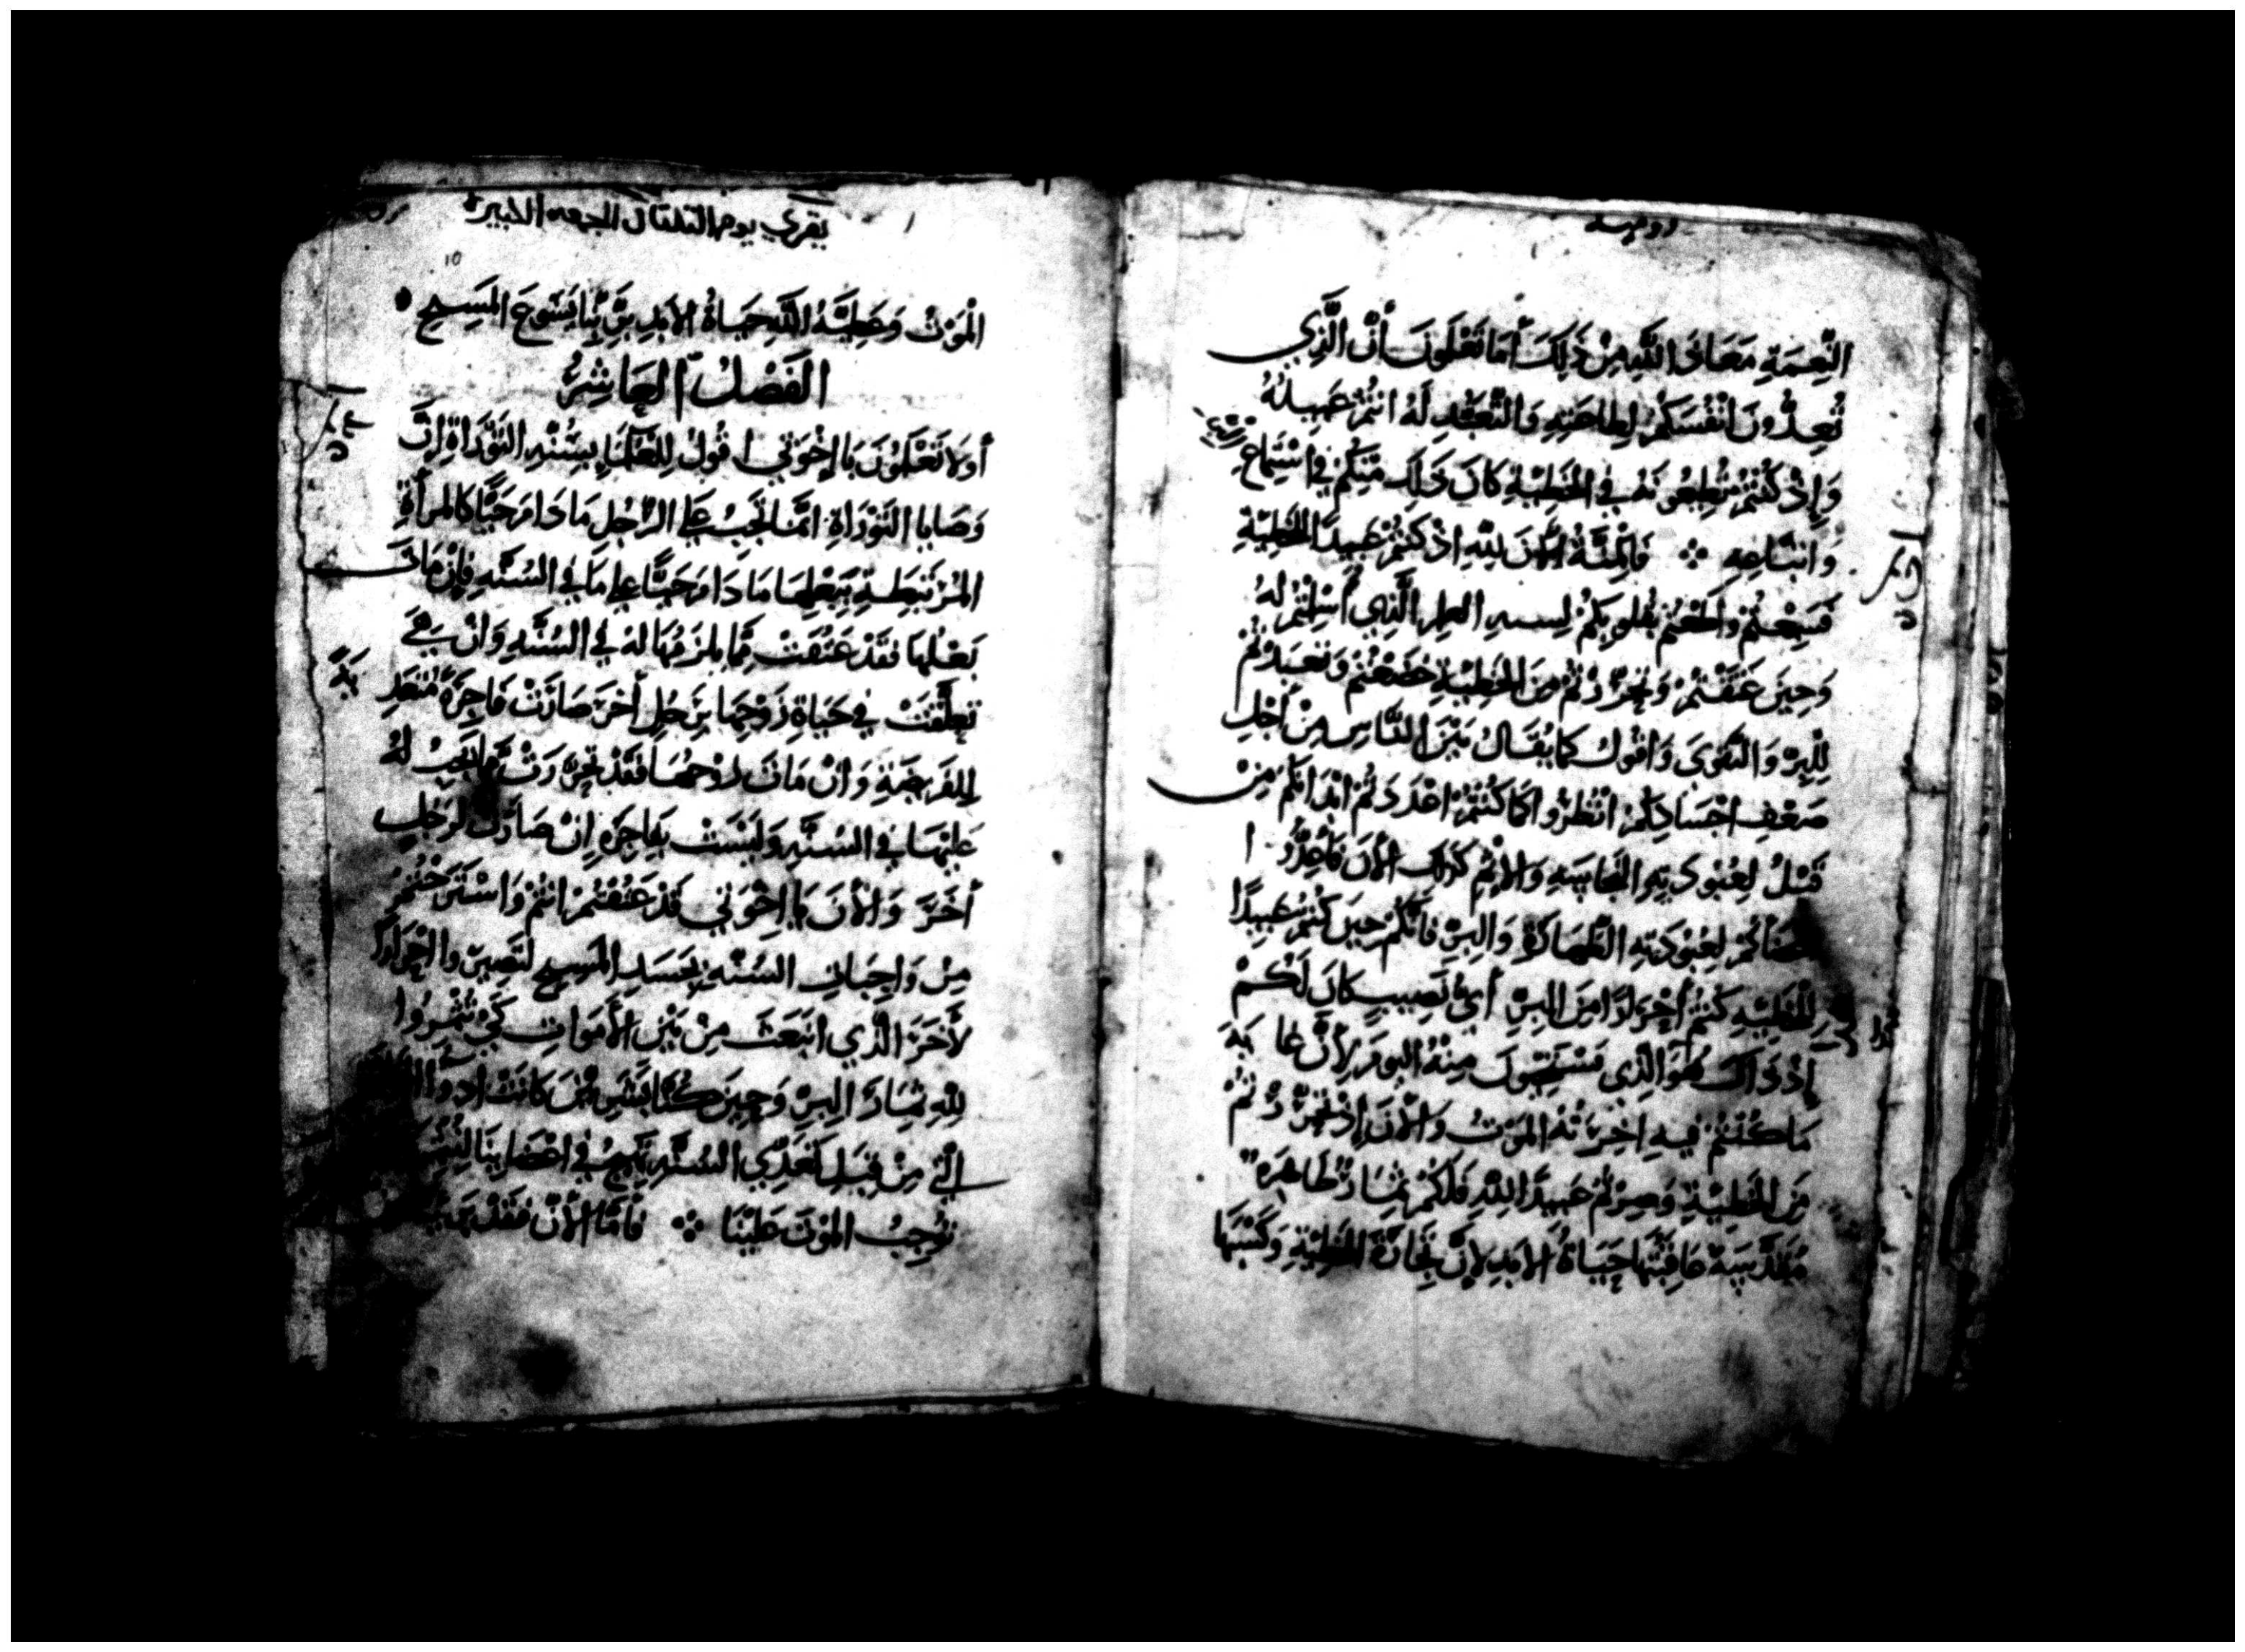 رومية
النِّعمَةِ مَعَاذَ اللَّهِ مِنْ ذَلِكَ أَمَا تَعْلَمُونَ أَنَّ الَّذِي
تُعِدُّونَ انْفُسَكُمْ لِطَاعَتِهِ وَالتَّعَبُّدِ لَهُ انتُمْ عَبِيدُهُ
وَإِذْ كُنْتُمْ تُطِيعُونَهُ فِي الخَطِيَّةِ كَانَ ذَلِكَ مِنْكُمْ فِي اسْتِمَاعِ
وَاتباعِهِ ۞ فَالمنَّةُ الآنَ لِلَّهِ اذْ كُنتُمْ عَبِيدًا للخَطِيَّةِ
فَسَمِعْتُمْ وَأَطَعْتُمْ بقلوبِكُمْ العِلم الَّذِي أُسْلِمْتُمْ لَهُ
وَحِينَ عُتِقْتُمْ وَتَحَرَّرْتُمْ مِنَ الخَطِيَّةِ خَضَعْتُمْ وَتَعَبَّدْتُمْ
لِلْبِرِّ وَالتَّقوَى وَاقول كَمَا يُقَالُ بَيْنَ النَّاسِ مِنْ أَجْلِ
ضَعْفِ اجْسَادِكُمْ انْظُرُوا كَمَا كُنْتُمْ اعْدَدتُمْ ابْدَانَكُمْ مِنْ
قَبْلُ لِعُبُودِيَّةِ النَّجَاسَةِ وَالاثْمِ كَذَلِكَ الآنَ فَأَعِدُّوا
أعضَاكُمْ لِعُبُودِيَّةِ الطَّهَارَةِ وَالبِرِّ فَانَّكُمْ حِينَ كُنتُمْ عَبِيدًا
لِلْخَطِيَّةِ كُنتُمْ أَحْرَارًا مِنَ البِرِّ أَيُّ نَصِيبٍ كَانَ لَكُمْ
إِذْ ذَاكَ هُوَ الَّذِي تَسْتَحْيُونَ مِنْهُ اليومَ لِأَنَّ
مَا كُنْتُمْ فِيهِ اخِرَتُهُ المَوْتُ وَالآنَ إِذْ تَحَرَّرْتُمْ
مِنَ الخَطِيَّةِ وَصِرْتُمْ عَبِيدًا لِلَّهِ فَلَكُمْ ثِمَارٌ طَاهِرَةٌ
مُقَدَّسَةٌ عَاقِبَتُهَا حَيَاةُ الأبَدِ لِأَنَّ تِجَارَةَ الخَطِيَّةِ وَكَسْبَهَا
يقري يوم الجمعه الكبيره
المَوْتُ وَعَطِيَّةُ اللَّهِ حَيَاةُ الأبَدِ بِرَبِّنَا يَسُوعَ المَسِيحِ
الفَصْلُ العَاشِرُ
أَوَلَا تَعْلَمُونَ يَا إِخْوَتِي اقُولُ لِلعُلَمَاءِ بِسُنَّةِ التَّوْرَاةِ إِنَّ
وَصَايَا التَّوْرَاةِ انَّمَا تَجِبُ عَلَى الرَّجُلِ مَا دَامَ حَيًّا كَالمرأَةِ
المُرْتَبِطَةِ بِبَعْلِهَا مَا دَامَ حَيًّا عَلَى مَا فِي السُّنَّةِ فَإِنْ مَاتَ
بَعْلُهَا فَقَدْ عَتَقَتْ مِمَّا يلزَمُهَا لَهُ فِي السُّنَّةِ وَانْ هِيَ
تَعَلَّقَتْ فِي حَيَاةِ زَوْجِهَا بِرَجُلٍ أخَرَ صَارَتْ فَاجِرَةً
لِلفَرِيضَةِ وَانْ مَاتَ زَوْجُهَا فَقَدْ تَحَرَّرَتْ مِمَّا يَجِبُ لَهُ
عَلَيْهَا فِي السُّنَّةِ وَلَيْسَتْ بِفَاجِرَةٍ إِنْ صَارَتْ لِرَجُلٍ
أخَرَ وَالآنَ يَا اخْوَتِي قَدْ عَتَقْتُمْ انتُمْ وَاسْتَرَحْتُمْ
مِنْ وَاجِبَاتِ السُّنَّةِ بِجَسَدِ المَسِيحِ لِتَصِيرُوا
لآخَرَ الَّذِي انبَعَثَ مِنْ بَيْنِ الأَمْوَاتِ كَيْ تُثْمِرُوا
لِلَّهِ ثِمَارَ البِرِّ وَحِينَ كُنَّا بَشَرِيِّينَ كَانَتْ
الَّتِي مِنْ قِبَلِ تَعَدِّي السُّنَّةِ تَهِيجُ فِي اعْضَائِنَا
تُوجِبُ المَوْتَ عَلَيْنَا ۞ فَأمَّا الآنَ فَقَدْ